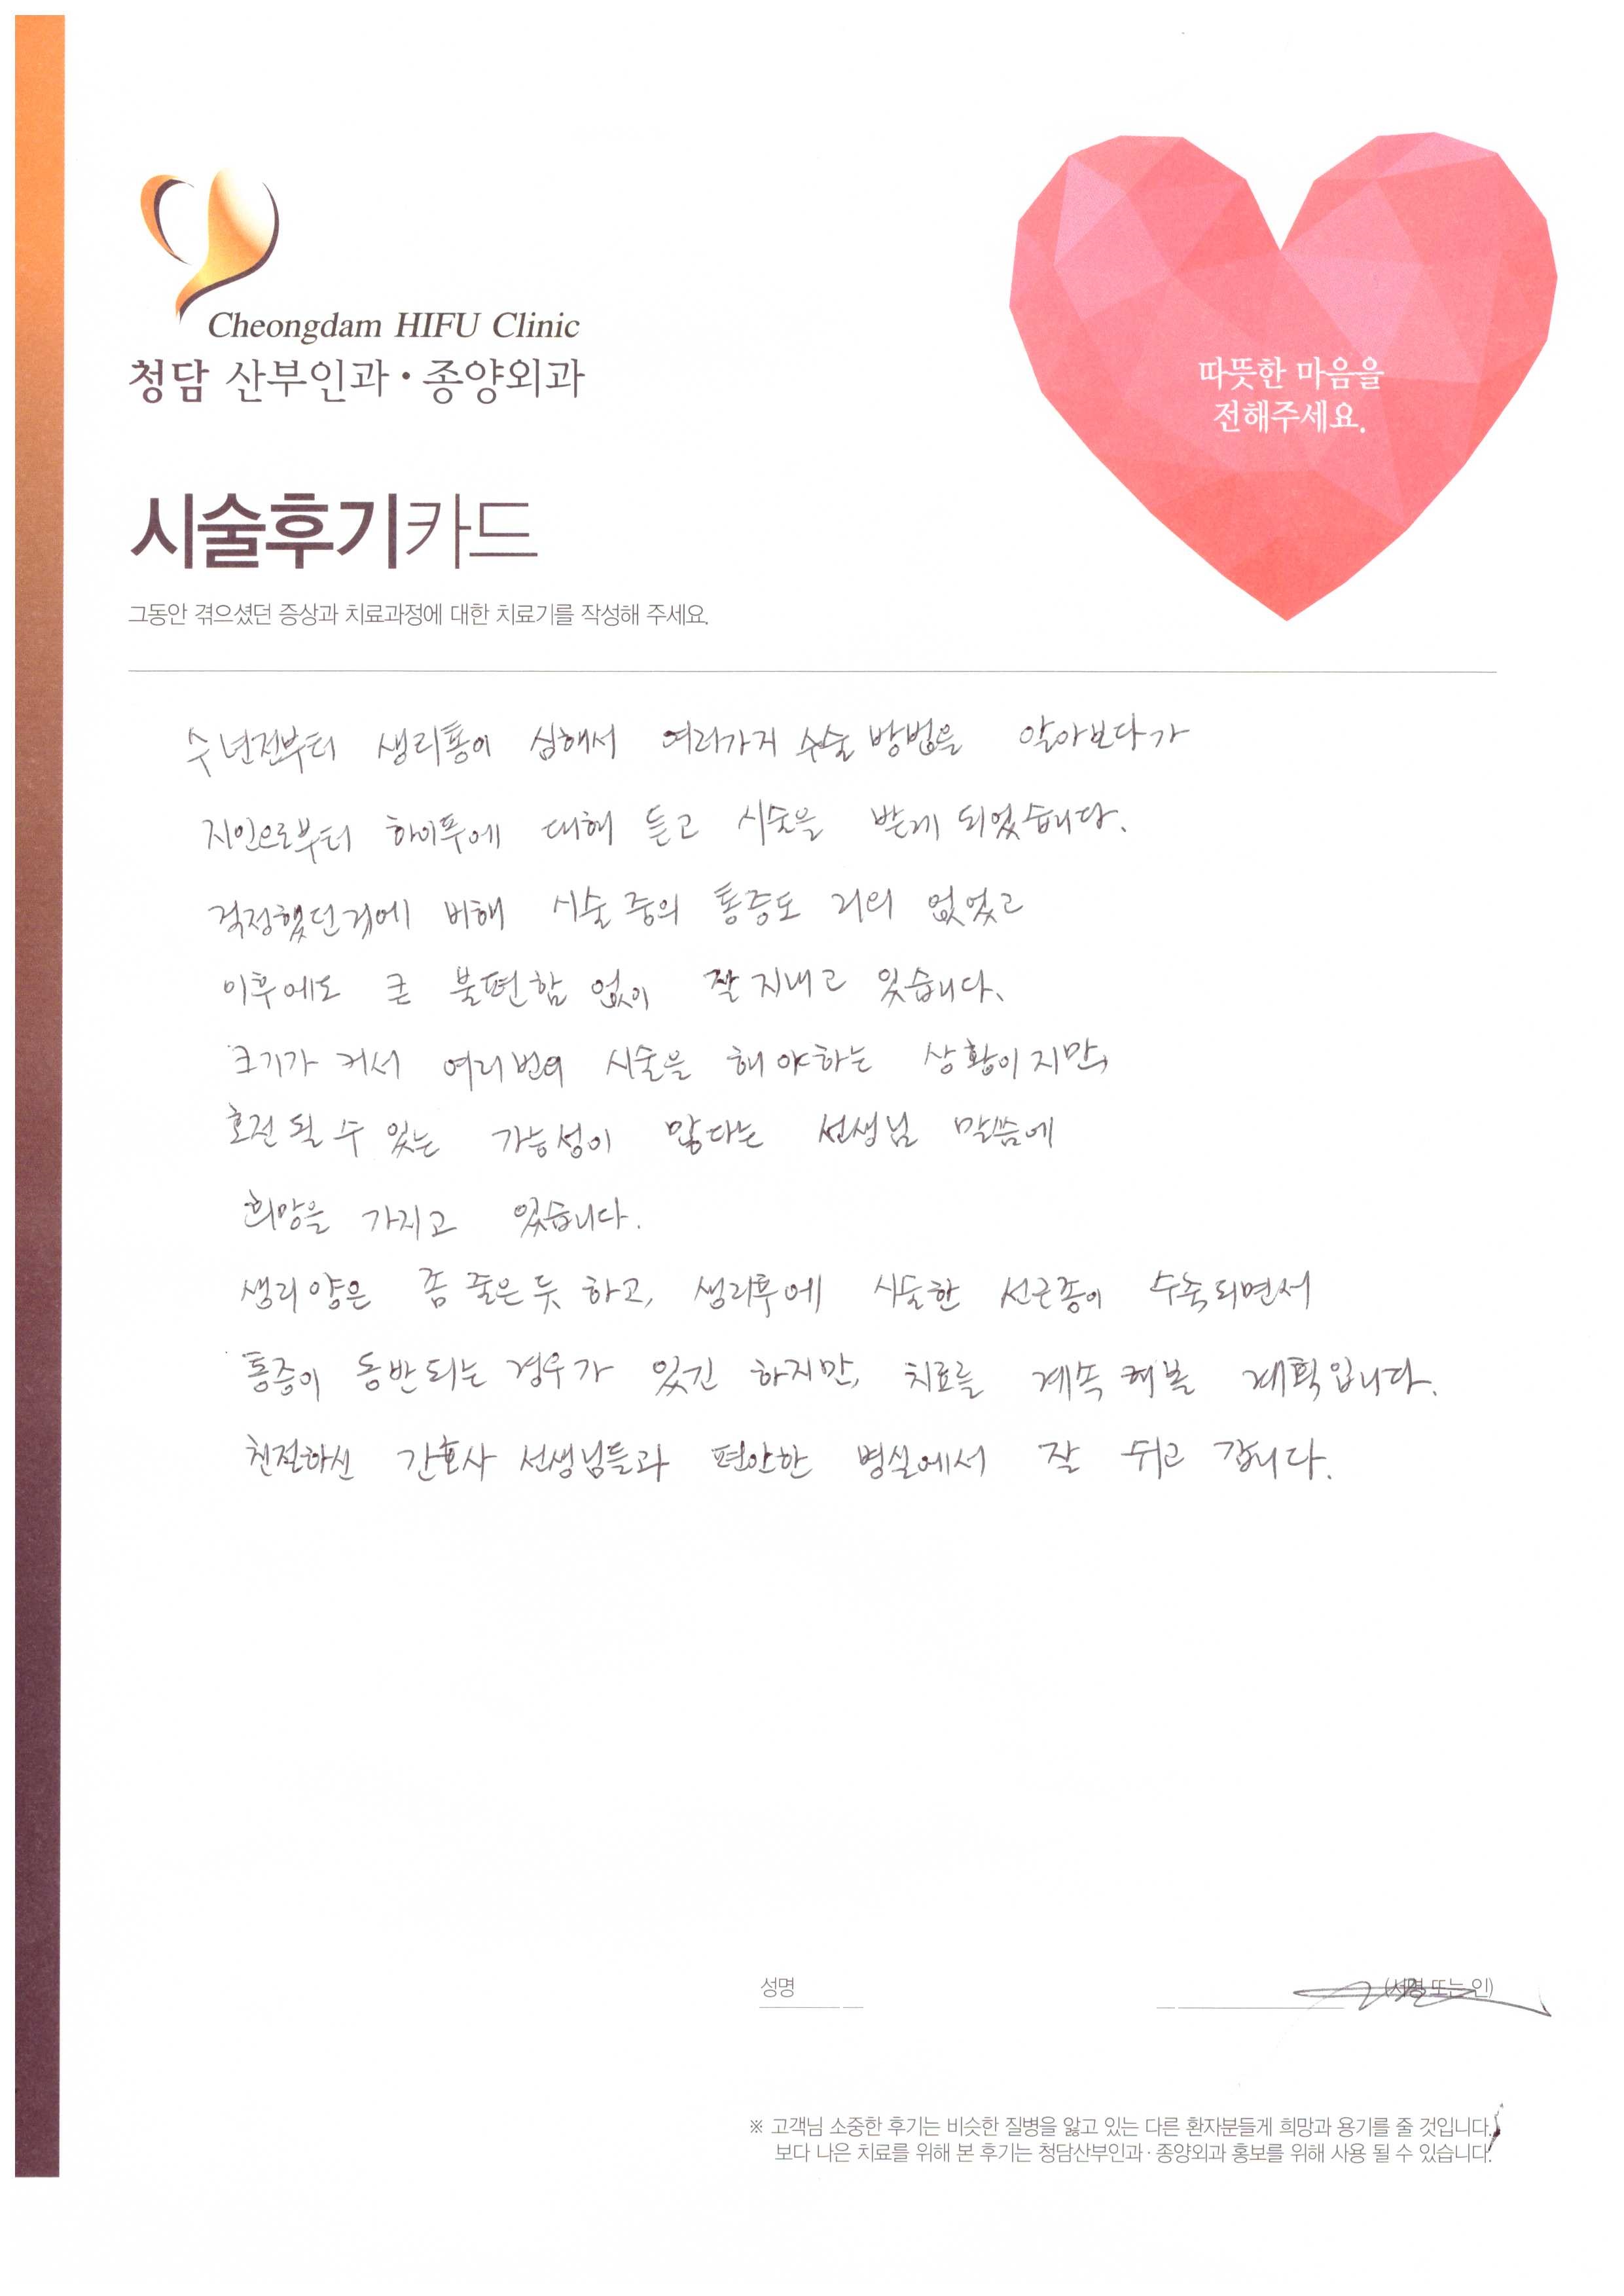 Cheongdam HIFU Clinic
청담 산부인과·종양외과
따뜻한 마음을
전해주세요.
시술후기카드
그동안 겪으셨던 증상과 치료과정에 대한 치료기를 작성해 주세요.
수년전부터 생리통이 심해서 여러가지 수술 방법을 알아보다가
지인으로부터 하이푸에 대해 듣고 시술을 받게 되었습니다.
걱정했던거에 비해 시술 중의 통증도 거의 없었고
이후에도 큰 불편함 없이 잘 지내고 있습니다.
크기가 커서 여러번의 시술을 해야하는 상황이지만,
호전 될 수 있는 가능성이 많다는 선생님 말씀에
희망을 가지고 있습니다.
생리양은 좀 줄은 듯 하고, 생리후에 시술한 선근종이 수축되면서
통증이 동반되는 경우가 있긴 하지만, 치료를 계속 해볼 계획입니다.
친절하신 간호사 선생님들과 편안한 병실에서 잘 쉬고 갑니다.
성명
(서명 또는 인)
※ 고객님 소중한 후기는 비슷한 질병을 앓고 있는 다른 환자분들게 희망과 용기를 줄 것입니다.
보다 나은 치료를 위해 본 후기는 청담산부인과·종양외과 홍보를 위해 사용 될 수 있습니다.